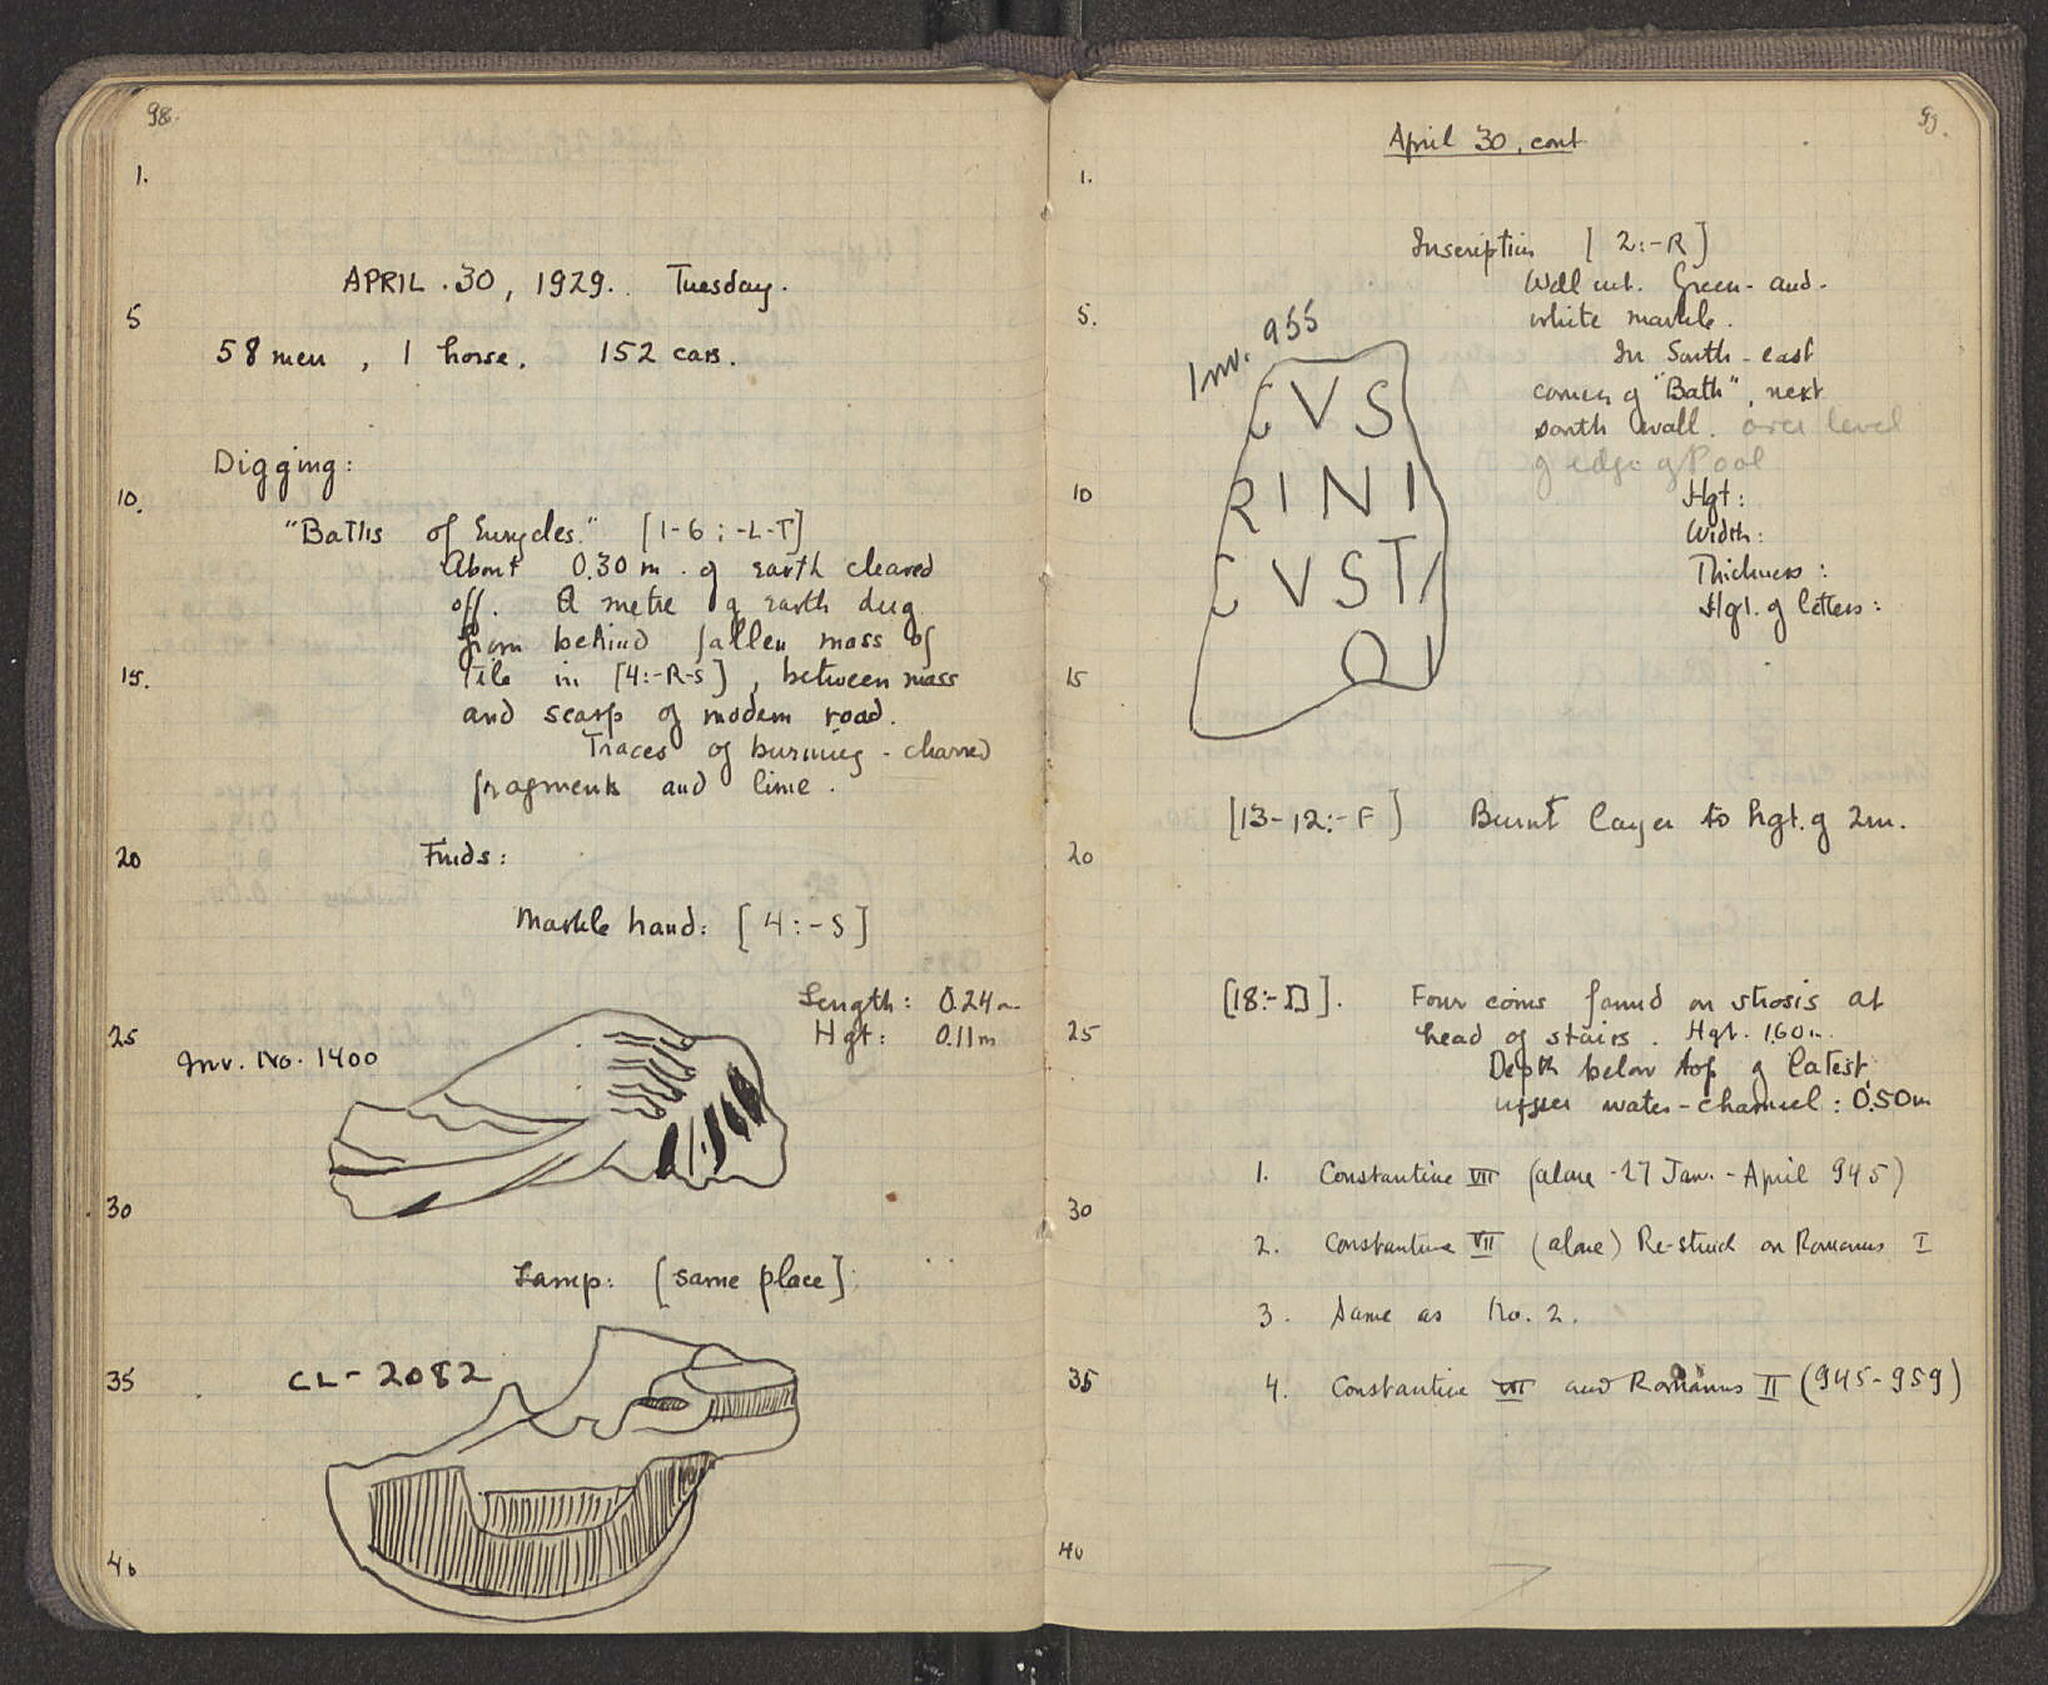 98.
1.
APRIL . 30, 1929. Tuesday.
5
58 men, 1 horse. 152 cars.
Digging:
10.
"Baths of Eurycles." [1-6 : -L-T]
About 0.30 m. of earth cleared
off. A metre of earth dug
from behind fallen mass of
15.
tile in [4:-R-S], between mass
and scarp of modern road.
Traces of burning - charred
fragments and lime.
20
Finds:
Marble hand: [4:-S]
Length: 0.24 m
25
Hgt: 0.11 m
Inv. No. 1400
30
Lamp: [same place]
35
CL-2082
40
99.
April 30, cont
1.
Inscription [2:-R]
Well cut. Green-and-
5.
white marble.
In South-east
corner of "Bath", next
south wall. over level
of edge of Pool
Inv. 955
CVS
RINI
CVSTI
OI
10
Hgt:
Width:
Thickness:
Hgt. of letters:
15
[13-12:-F] Burnt layer to hgt. of 2m.
20
[18:-]. Four coins found on strosis at
25
head of stairs. Hgt. 1.60 m.
Depth below top of latest
upper water-channel: 0.50m
1. Constantine VII (alone -27 Jan. - April 945)
30
2. Constantine VII (alone) Re-struck on Romanus I
3. Same as No. 2.
35
4. Constantine VII and Romanus II (945-959)
40